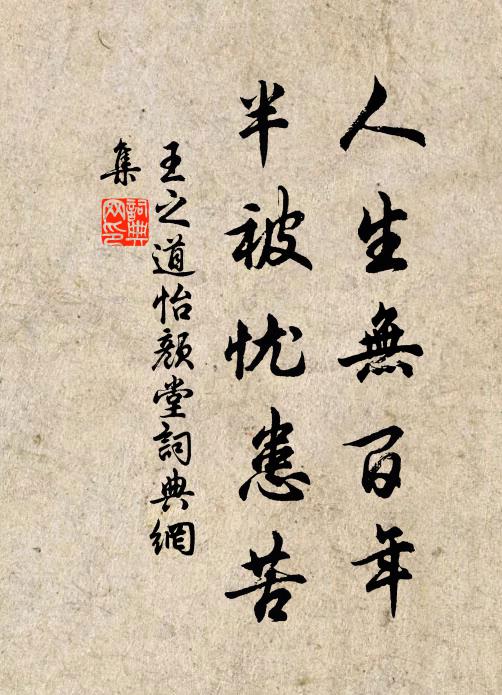 人生無百年
半被忧患苦
王之道怡顏堂詞典網
集
詞典
网印